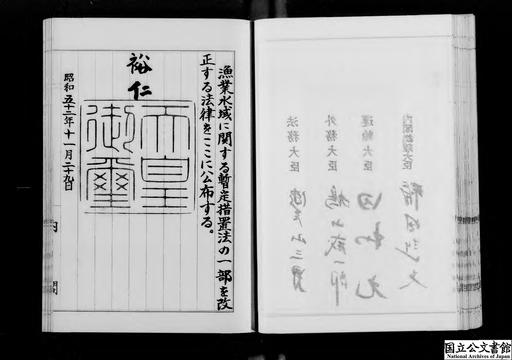 漁業水域に関する暫定措置法の一部を改
正する法律をここに公布する。
裕仁
天皇
御璽
昭和五十二年十一月二十九日
内閣
内閣総理大臣 福田赳夫
運輸大臣 田村元
外務大臣 鳩山威一郎
法務大臣 瀬戸山三男
国立公文書館
National Archives of Japan